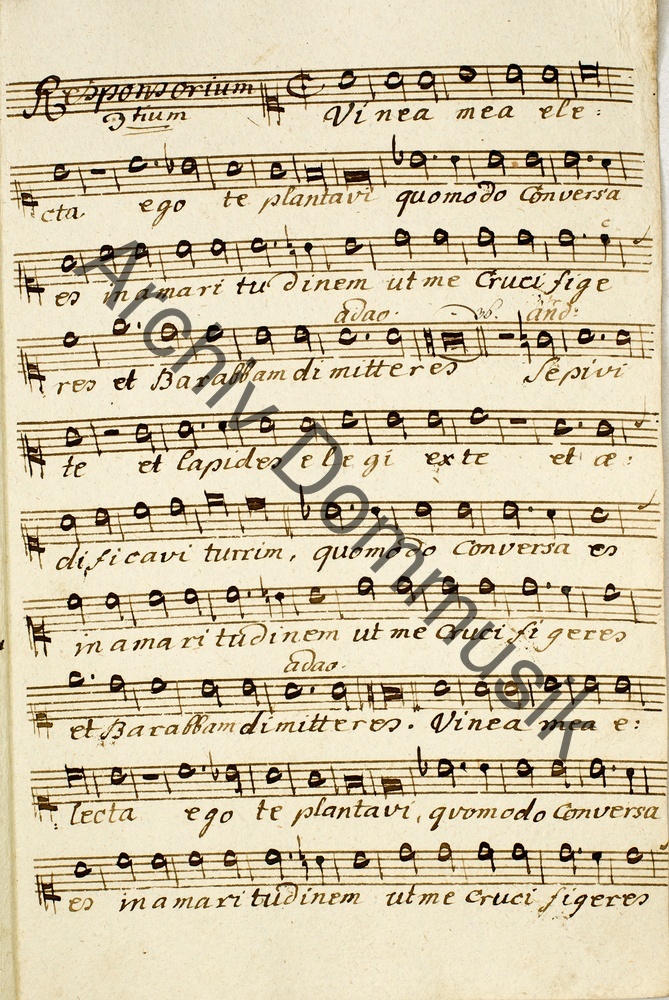 Responsorium
3tium
Vinea mea ele:
cta ego te plantavi quomodo Conversa
es in amaritudinem ut me Crucifige
adao. and:
res et Barabbam dimitteres Sepivi
te et lapides elegi ex te et æ:
dificavi turrim, quomodo Conversa es
in amaritudinem ut me Crucifigeres
adao.
et Barabbam dimitteres. Vinea mea e:
lecta ego te plantavi, quomodo Conversa
es in amaritudinem ut me Crucifigeres
Archiv Dommusik